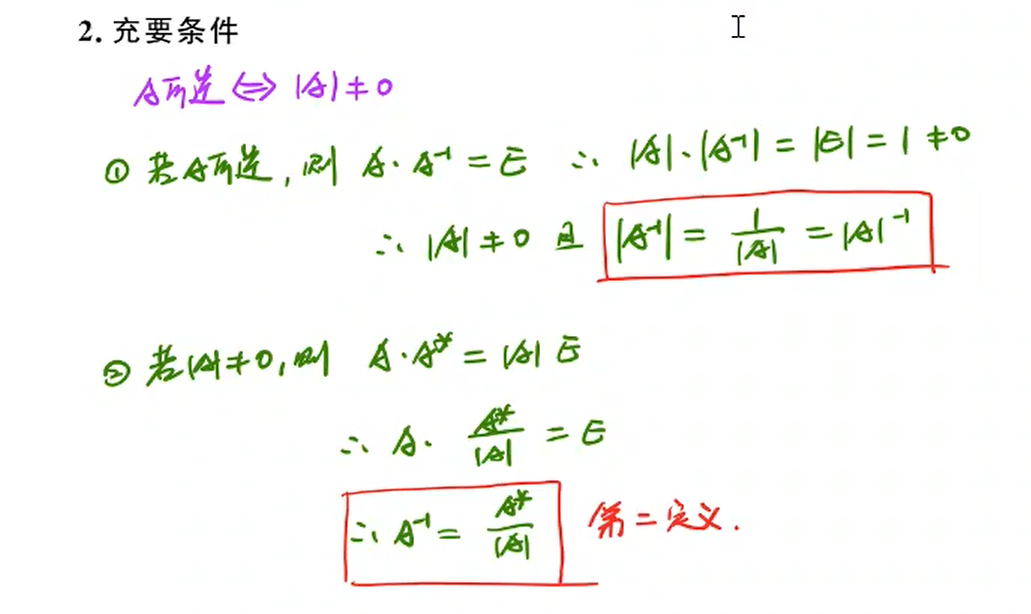 2. 充要条件
A可逆 ⇔ |A| ≠ 0
① 若A可逆, 则 A·A⁻¹ = E ∴ |A|·|A⁻¹| = |E| = 1 ≠ 0
∴ |A| ≠ 0 且 |A⁻¹| = 1/|A| = |A|⁻¹
② 若|A| ≠ 0, 则 A·A* = |A| E
∴ A· A*/|A| = E
∴ A⁻¹ = A*/|A| 第二定义.